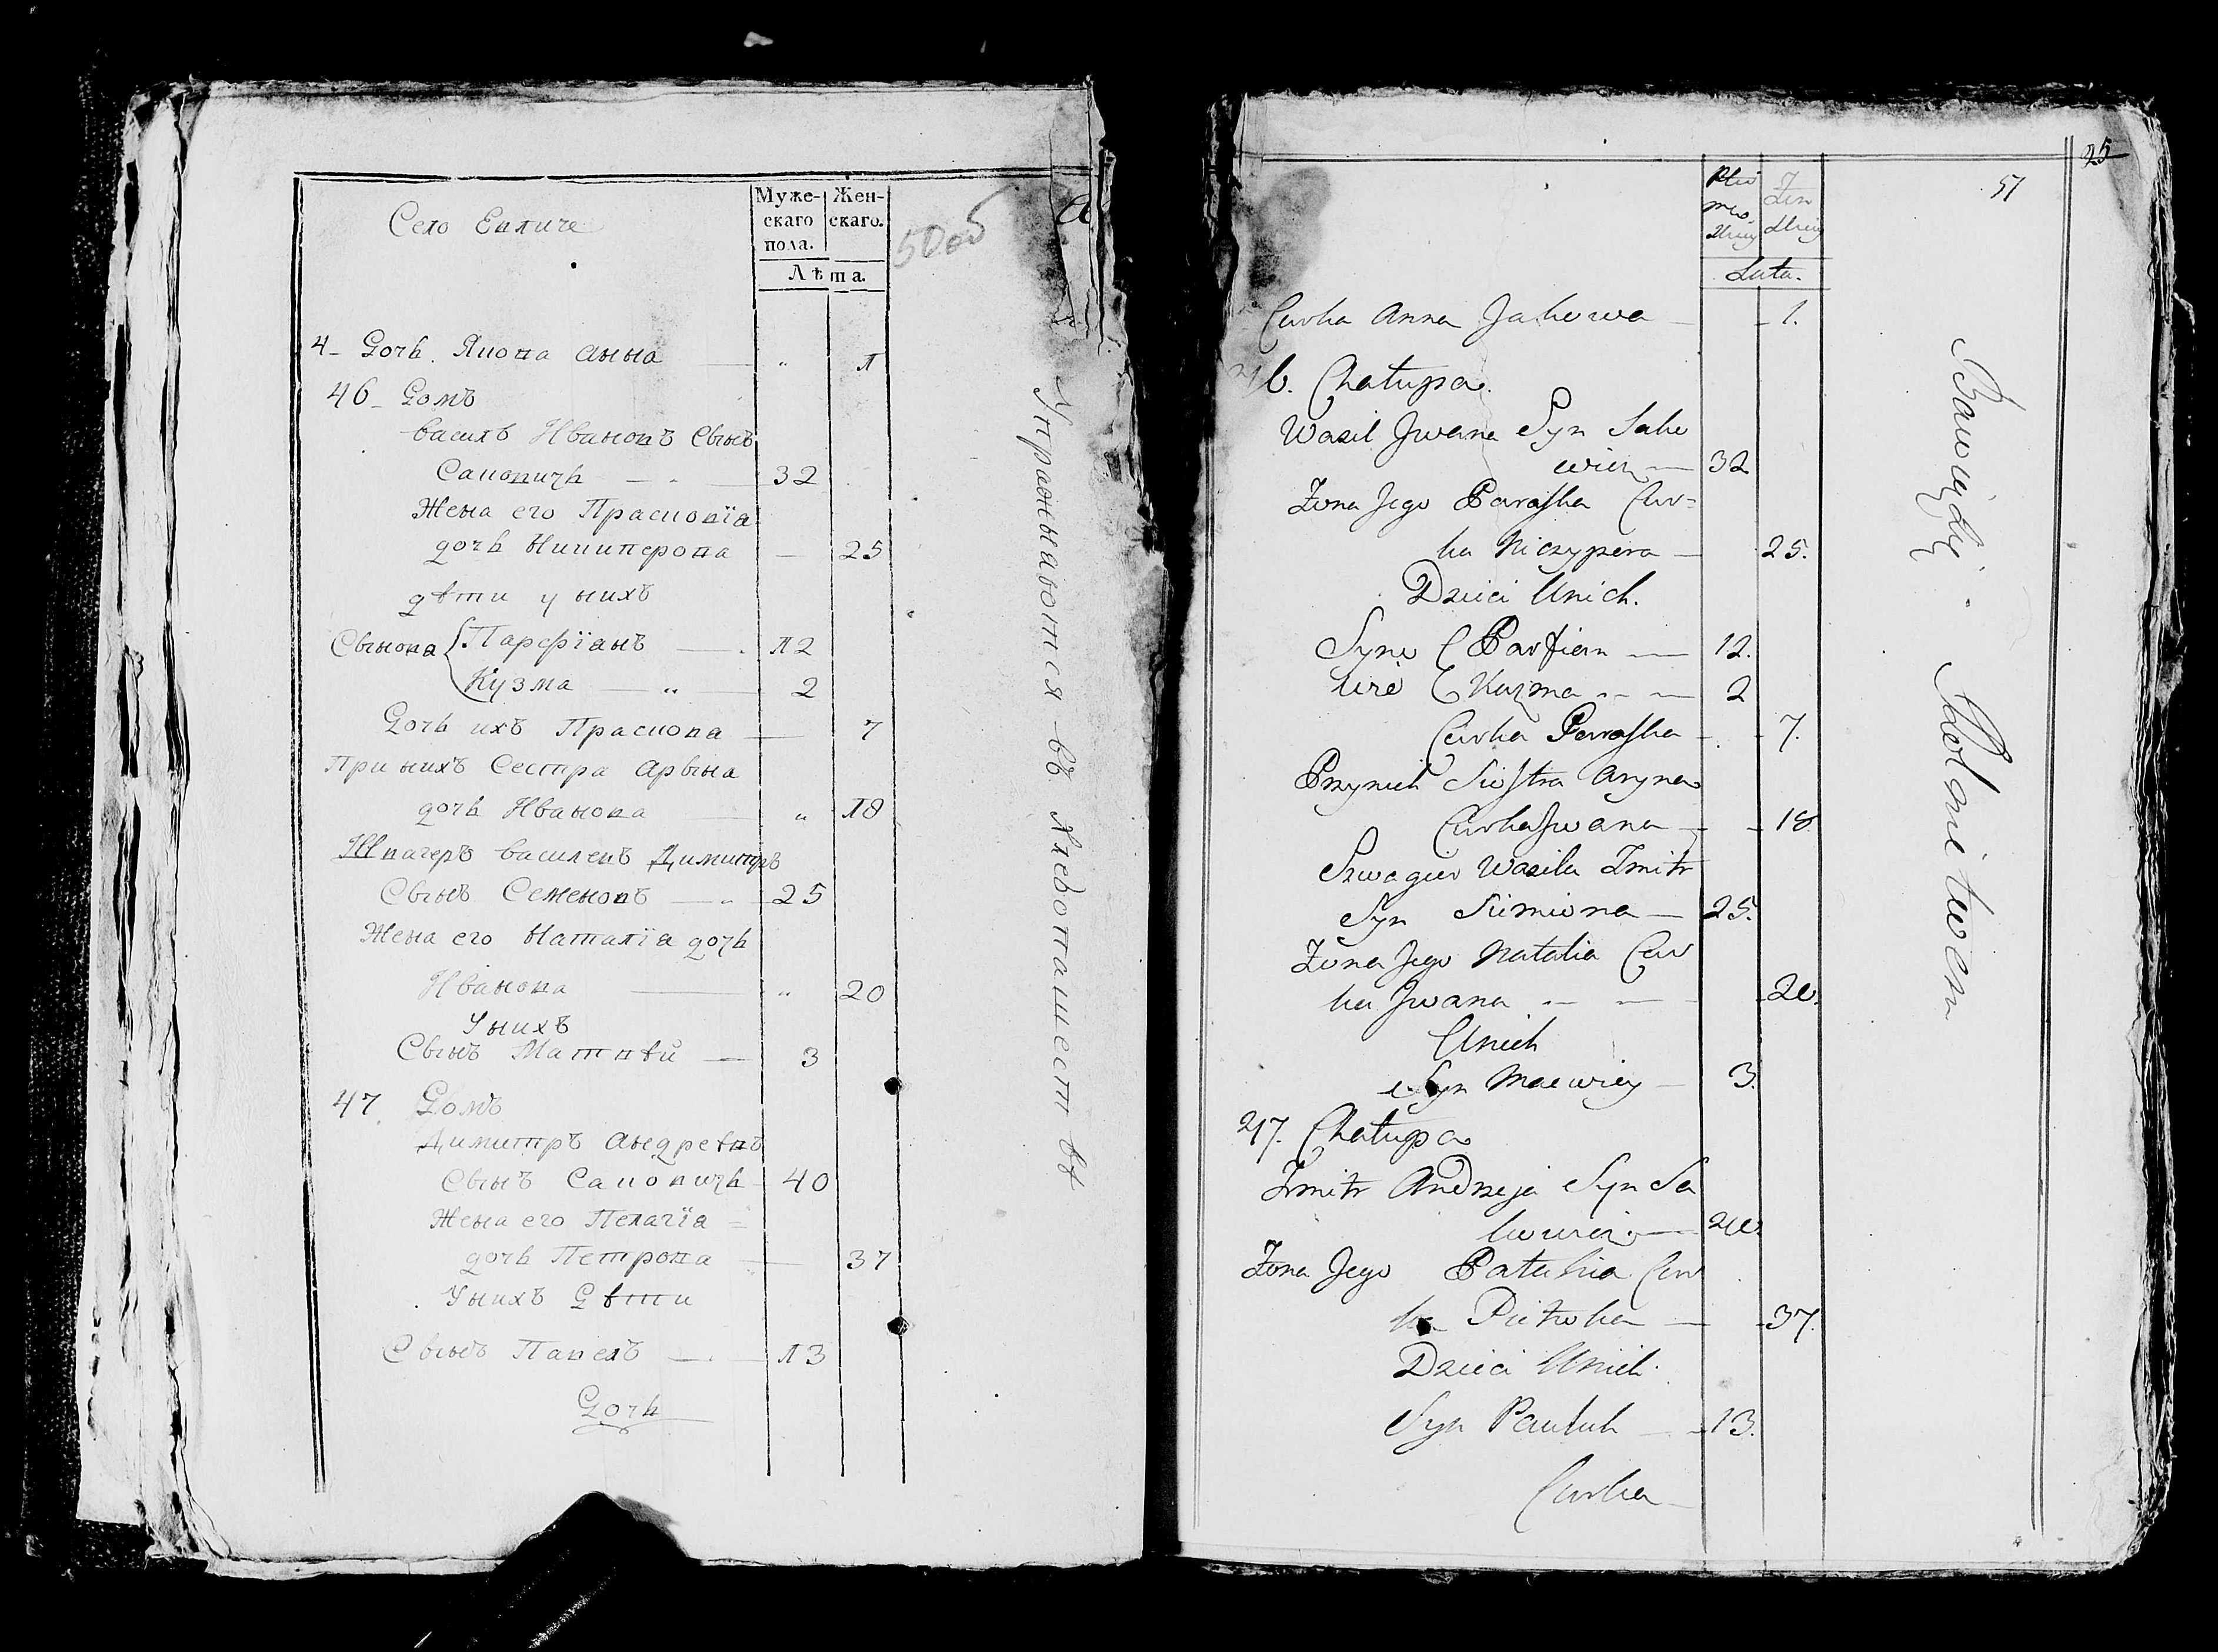 Село Епличе
Муже-
скаго
пола.
Жен-
скаго.
Лѣта.
50об
4- Дочь Якова анна — " 1
46- Домъ
василь Ивановъ Сынъ
Саковичь — 32
Жена его Прасковїа
дочь Ничипорова — 25
дѣти у нихъ
Сынова { Парфїанъ — 12
Кузма — " — 2
Дочь ихъ Праскова — 7
При нихъ Сестра арына
дочь Иванова " 18
Швагеръ василевъ Димитръ
Сынъ Семеновъ — 25
Жена его Наталїа дочь
Иванова — " 20
У нихъ
Сынъ Матвѣй — 3
47. Домъ
Димитръ андреевъ
Сынъ Саковичь 40
Жена его Пелагїа =
дочь Петрова — 37
У нихъ Дѣти
Сынъ Павелъ — 13
Дочь
Упражнаются въ Хлебопашеств
25
51
Lata.
Curka Anna Jakowa — 1.
46. Chałupa.
Wasil Jwana Syn Sako
wicz — 32
Zona Jego Paraska Cur=
ka Niczypora — 25.
Dzieci Unich.
Syno { Parfien — 12.
wie { Kuzma — 2
Curka Paraska - 7.
Przynich Siostra Aryna
Curka Jwana — 18
Szwagier Wasila Zmitr
Syn Simiona — 25.
Zona Jego Natalia Cur
ka Jwana — 20.
Unich
Syn Maćwiey — 3.
47. Chałupa
Zmitr Andrzeja Syn Sa
kowicz — 40.
Zona Jego Pałahia Cur
ka Pietroka — 37.
Dzieci Unich.
Syn Pauluk — 13.
Curka
Bawią się Rolnictwem